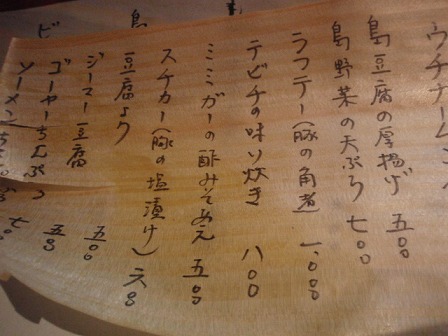 島豆腐の厚揚げ 五〇〇
島野菜の天ぷら 七〇〇
ラフテー(豚の角煮) 一、〇〇〇
テビチの味い炊き 八〇〇
ミミガーの酢みそあえ 五〇〇
スチカー(豚の塩漬け) 六〇〇
豆腐よう
ジーマー豆腐 五〇〇
ゴーヤーちんぷるう 五〇〇
ソーメン 七〇〇